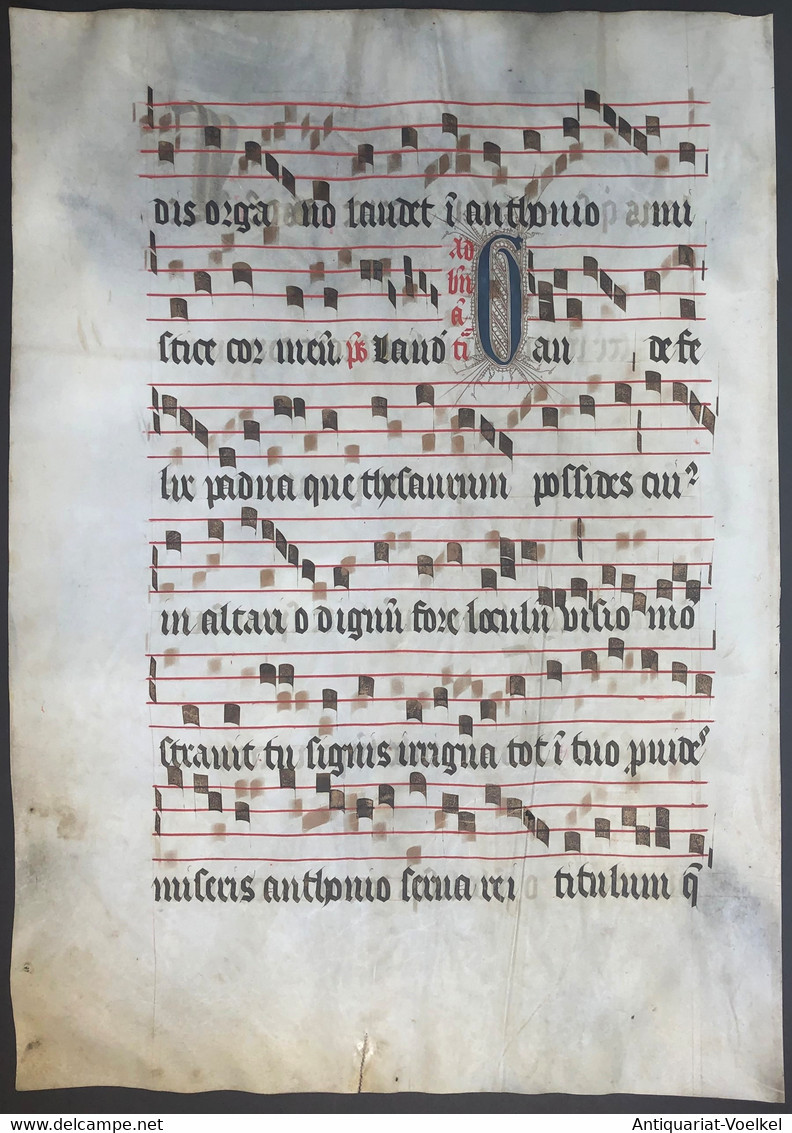 dis orga no laudet ī anthonio mi
stice cor meū. ps Laud ad bn̄ a- ti Gau de fe
lix padua que thesaurum possides cui⁹
in altari o dignū fore loculū visio mō
stravit tu signis irrigua tot ī tuo
miseris anthonio serva rei titulum
Antiquariat-Voelkel